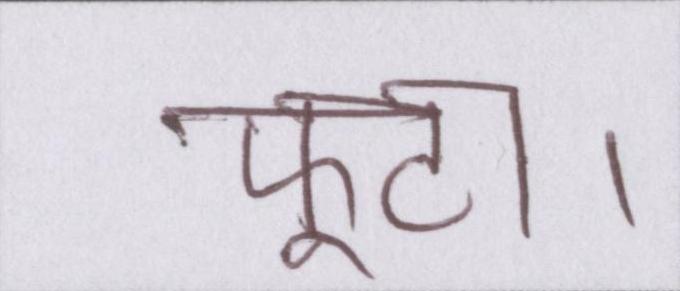 फूटा।